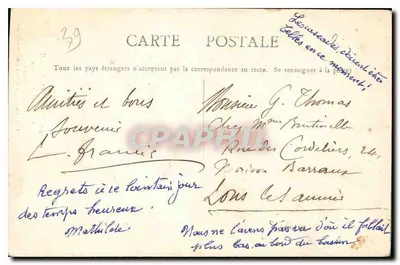 39
Les cascades, devraient être
belles en ce moment!
CARTE POSTALE
Tous les pays étrangers n'acceptent pas la correspondance au recto. Se renseigner à la poste
Amitiés et bons
souvenirs
L. Francis
Monsieur G. Thomas
Chez Mme
Rue des Cordeliers, 24
Maison Barraux
Lons le Saunier
CPARAMA
Regrets à ce lointain jour
des temps heureux.
Mathilde
Nous ne l'avons pas vu d'où il fallait
plus bas, au bord du bassin